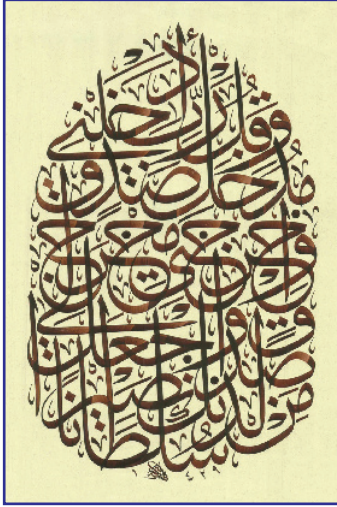 وَقُل رَّبِّ أَدْخِلْنِي
مُدْخَلَ صِدْقٍ
وَأَخْرِجْنِي مُخْرَجَ
صِدْقٍ وَاجْعَل لِّي
مِن لَّدُنكَ سُلْطَانًا نَّصِيرًا